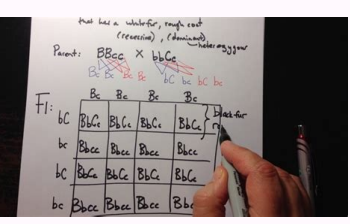 that has a white fur, rough coat
(recessive), (dominant)
heterozygous
Parent: BBcc × bbCc
Bc Bc Bc Bc bC bc bC bc
Bc Bc Bc Bc
F1:
bC BbCc BbCc BbCc BbCc black fur
bc Bbcc Bbcc Bbcc Bbcc
bC BbCc BbCc BbCc BbCc
bc Bbcc Bbcc Bbcc Bbcc